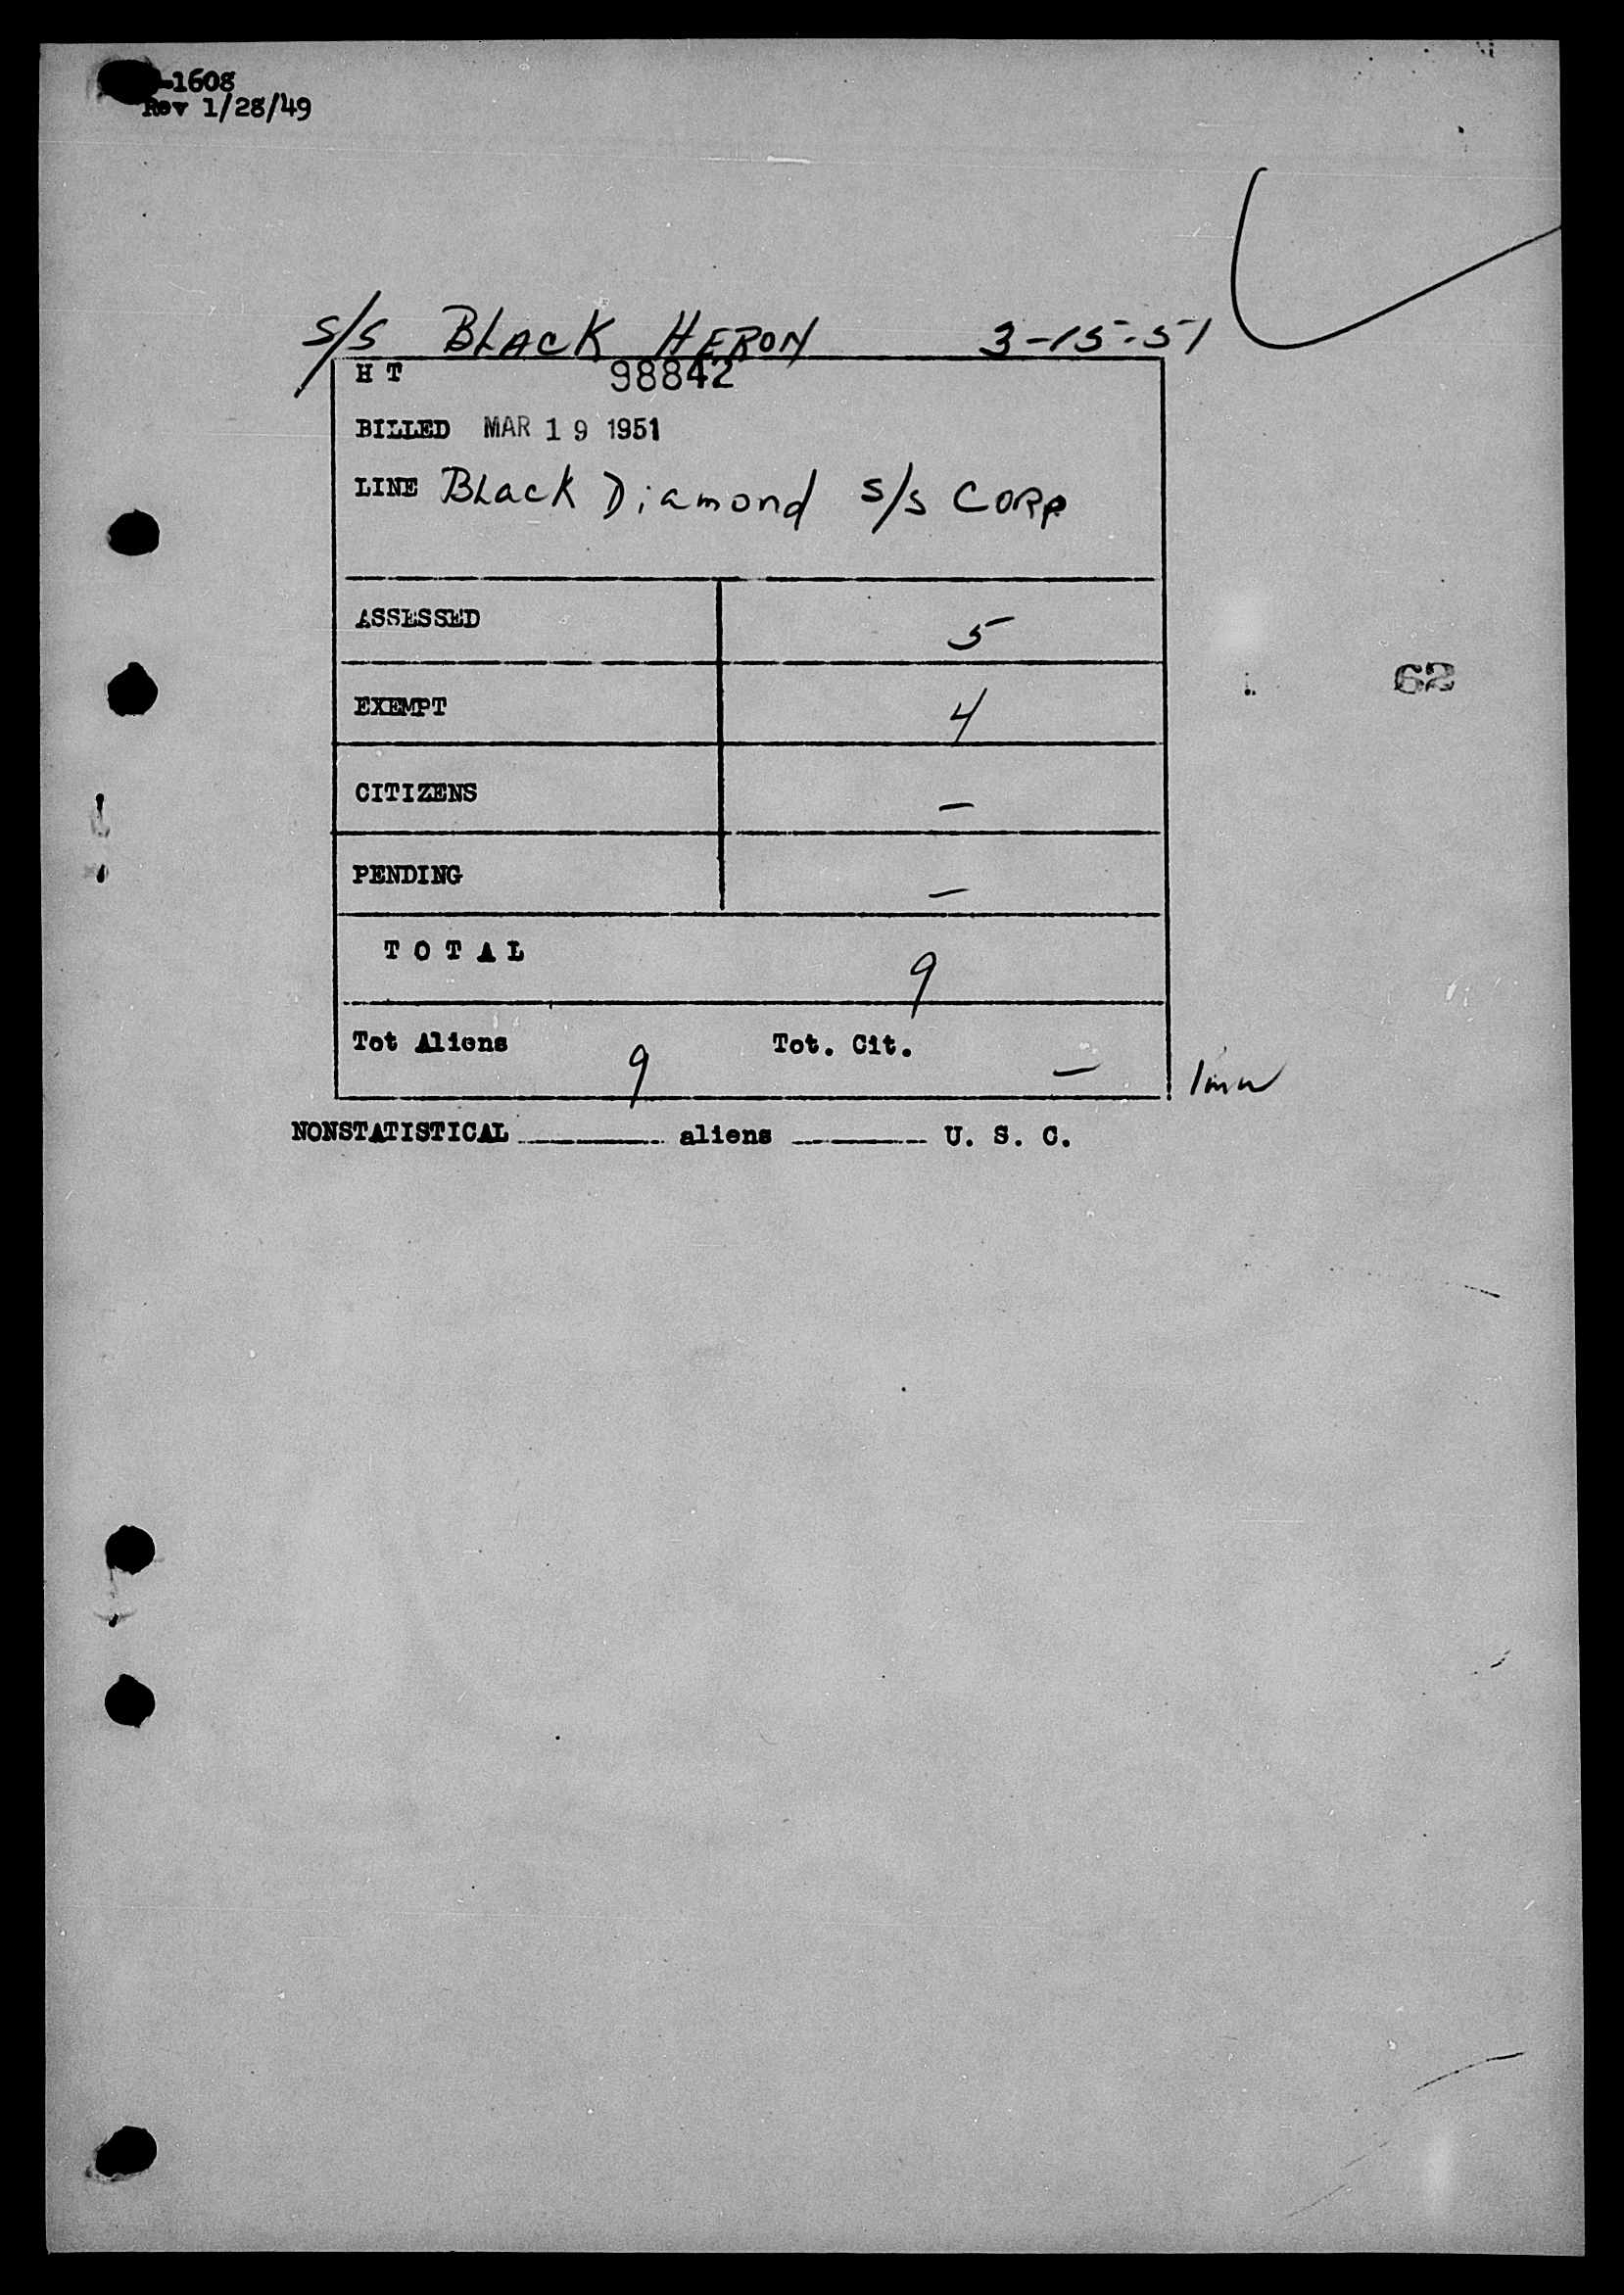 -1608
Rev 1/28/49
S/S BLACK HERON 3-15-51
H T 98842
BILLED MAR 19 1951
LINE Black Diamond S/S CORP
ASSESSED 5
EXEMPT 4
62
CITIZENS -
PENDING -
T O T A L 9
Tot Aliens 9 Tot. Cit. -
NONSTATISTICAL aliens U. S. C.